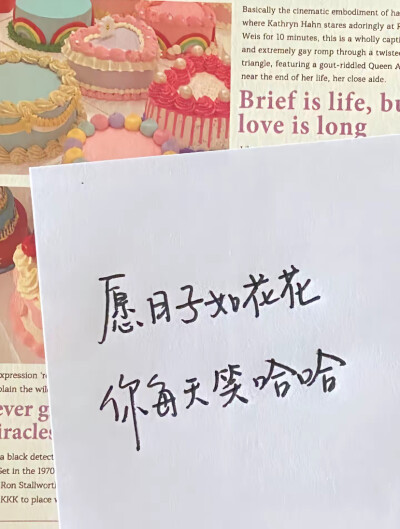 Basically the cinematic embodiment of
where Kathryn Hahn stares adoringly at
Weis for 10 minutes, this is a wholly
and extremely gay romp through a twisted
triangle, featuring a gout-riddled Queen
near the end of her life, her close aide.
Brief is life,
love is long
愿日子如花花
你每天笑哈哈
xpression
plain the
ever
iracles
a black
Set in the 1970
Ron
KKK to place